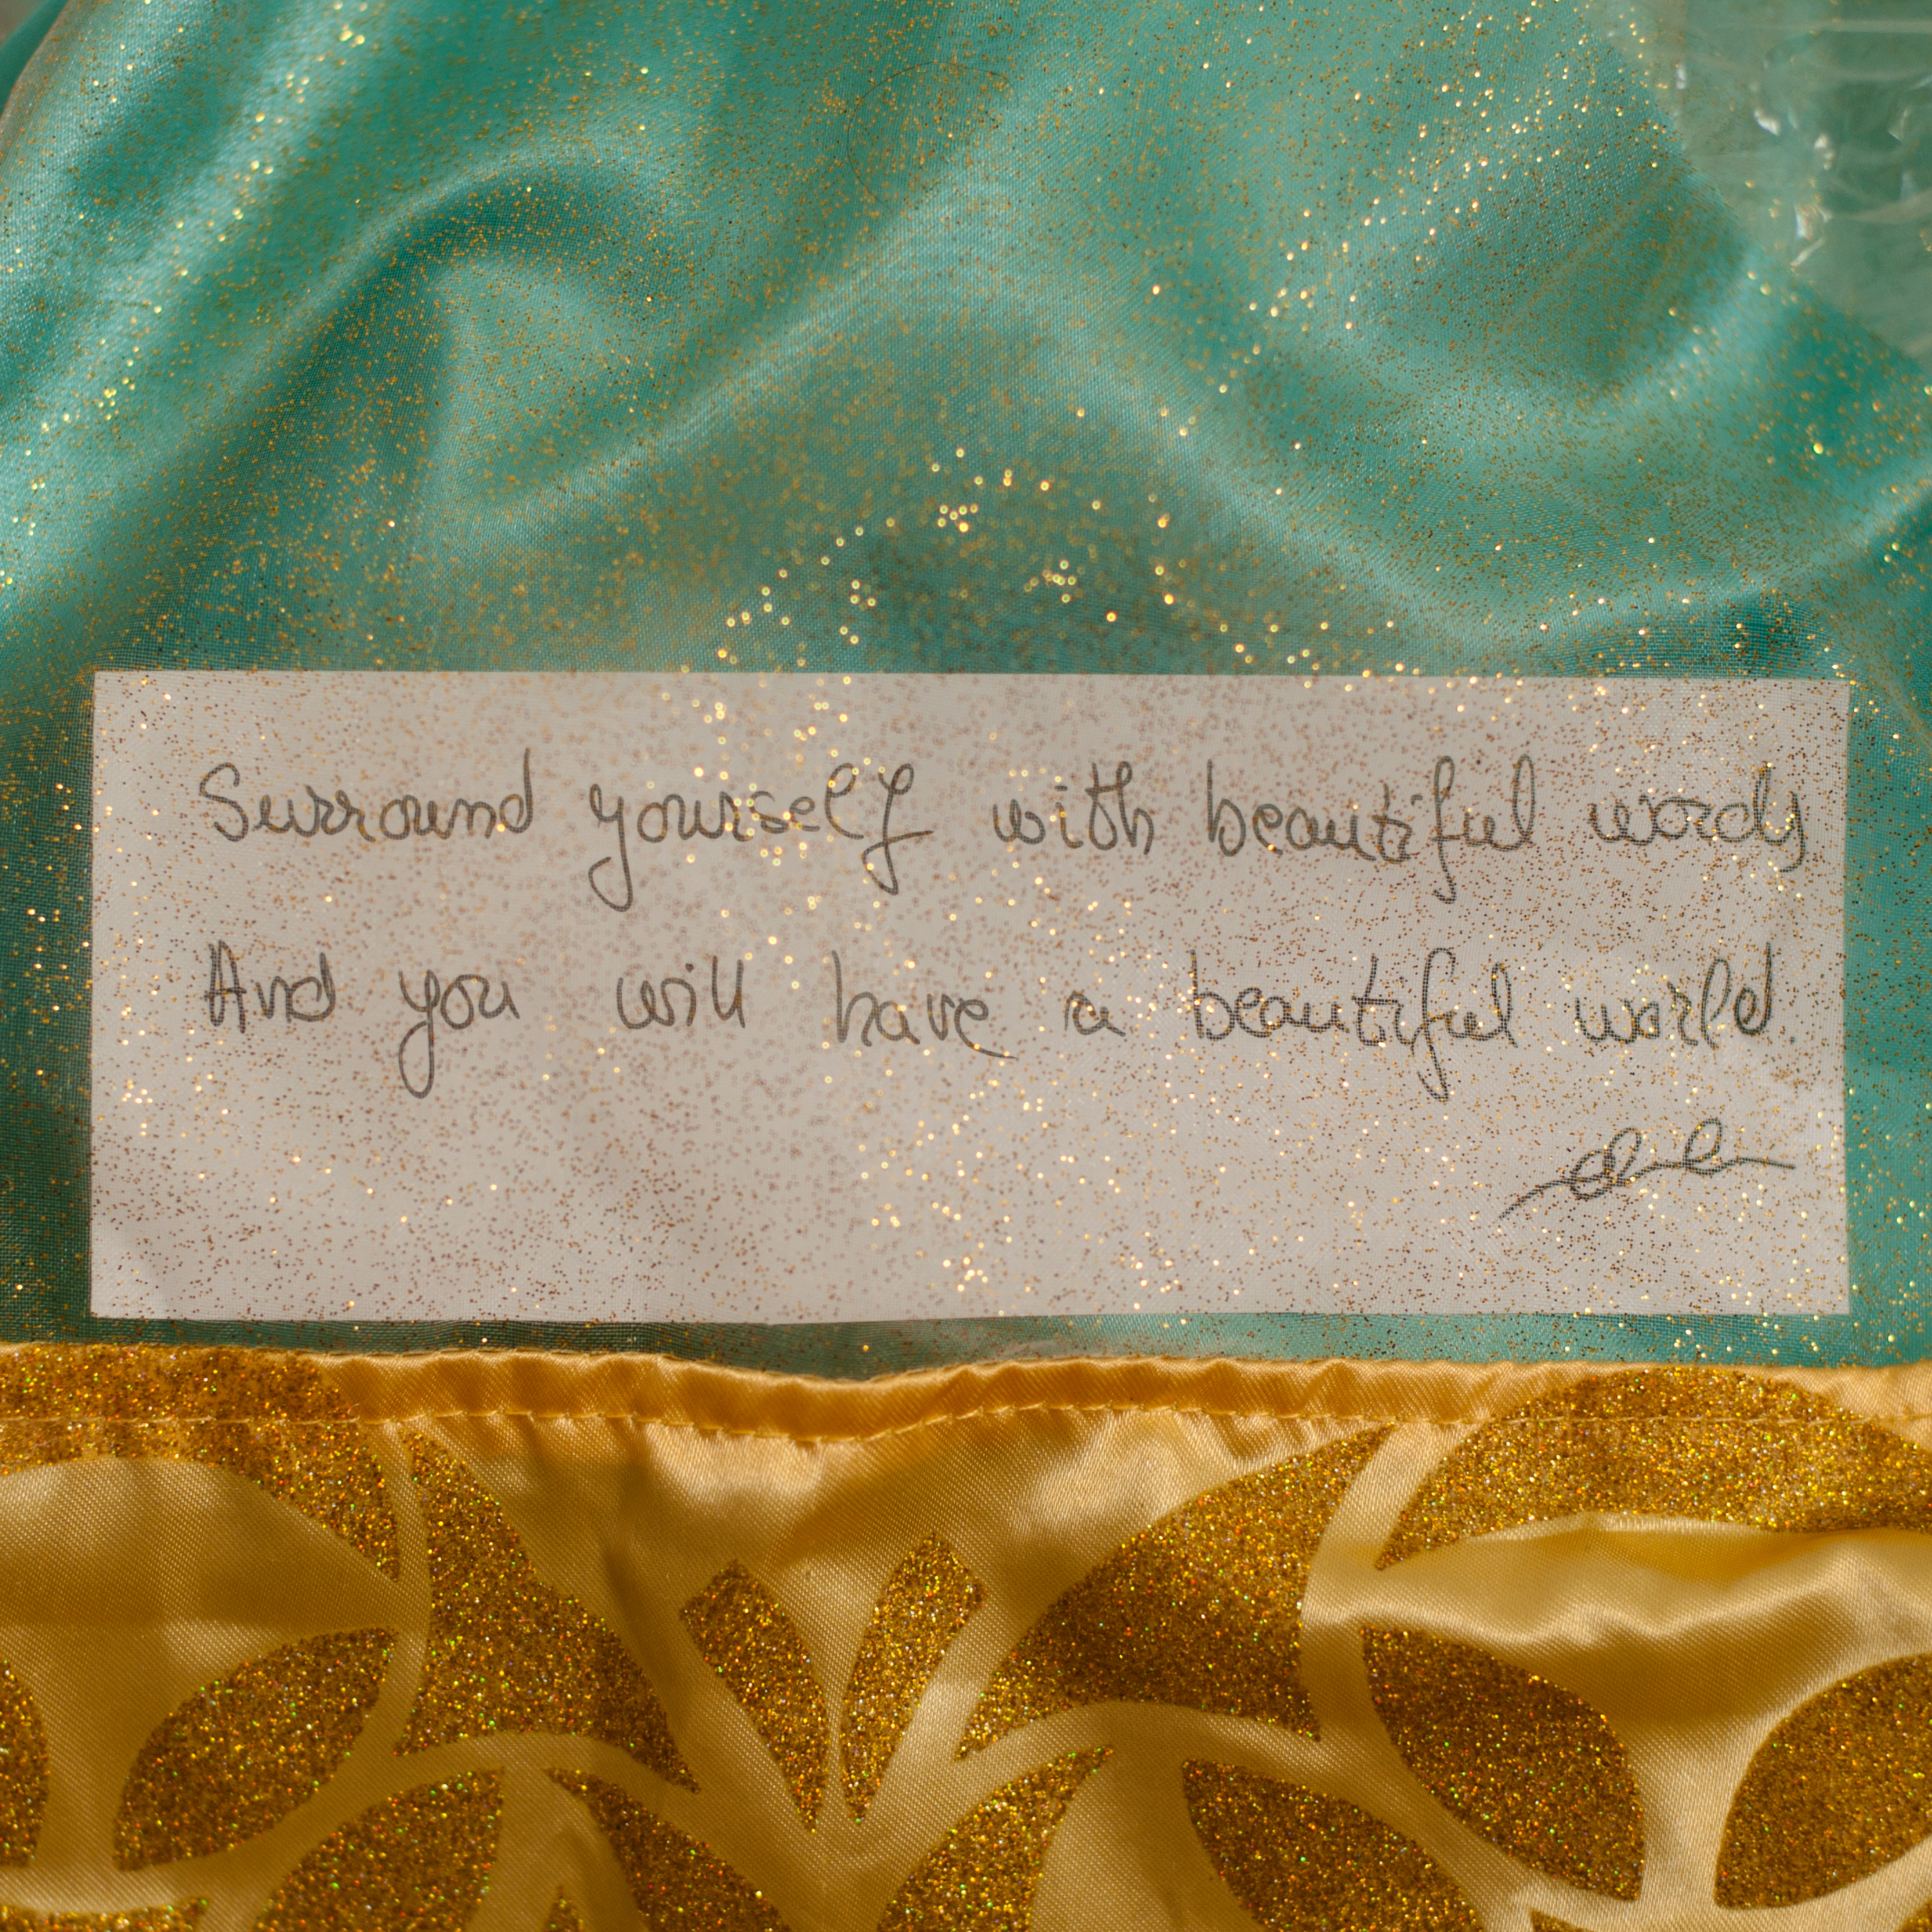 Surround yourself with beautiful words
And you will have a beautiful world.